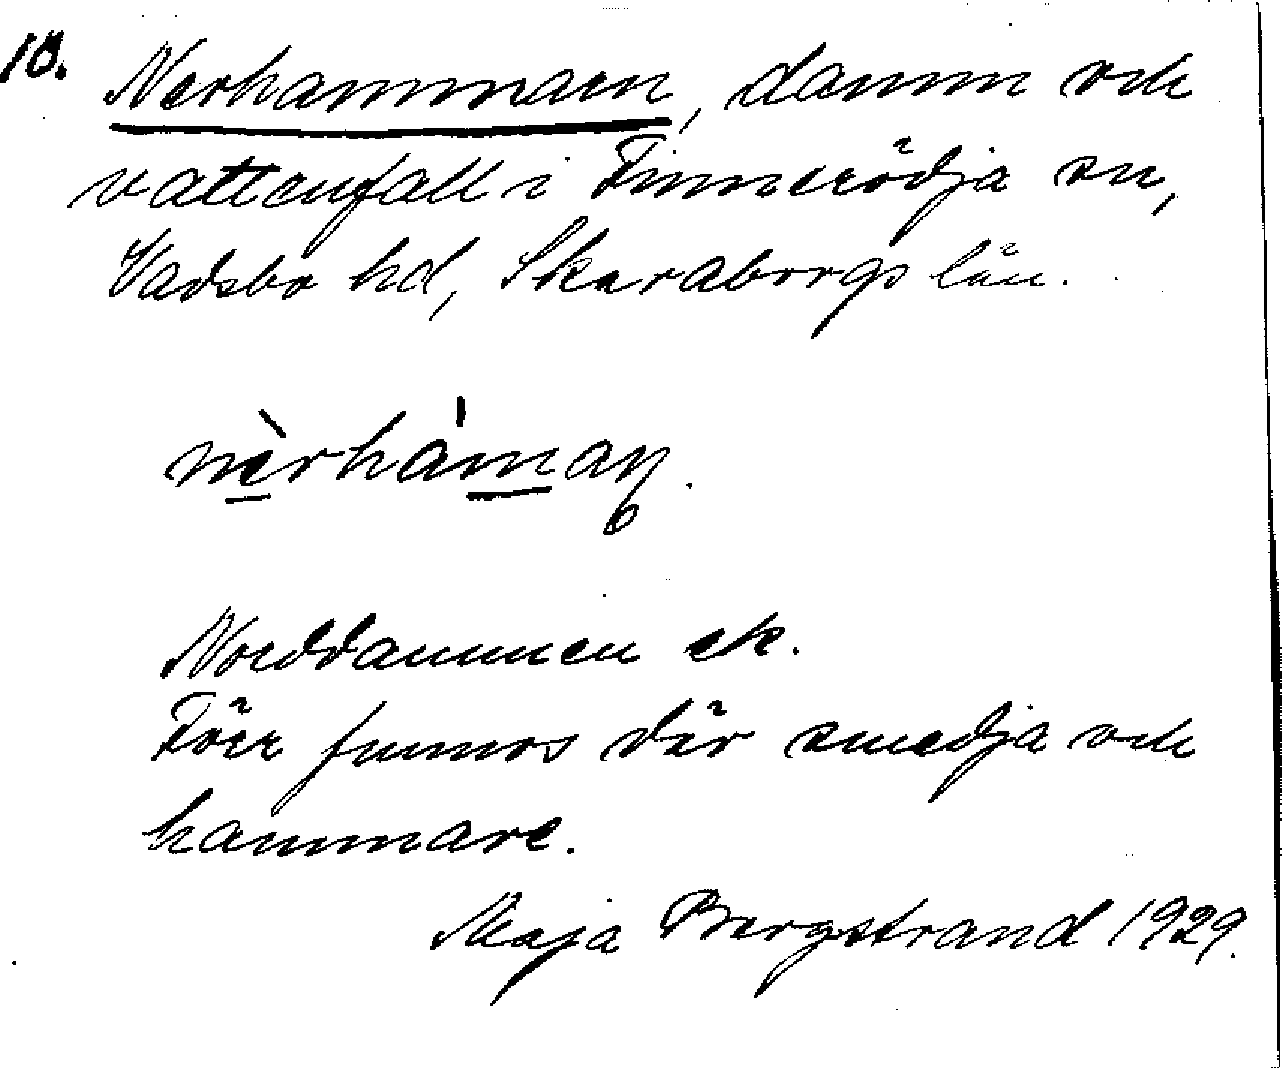 18. Nerhammaen, damm och
vattenfall i Finnerödja sn,
Vadsbo hd, Skaraborgs län.
nèrhámaṇ.
Norddammen ek.
Förr funnos där smedja och
hammare.
Maja Bergstrand 1929.